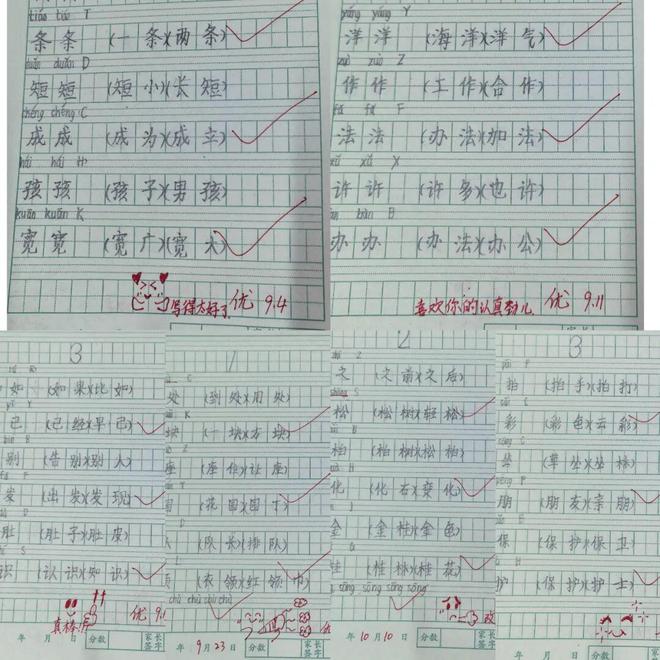 tiáo tiáo T
条条 (一条)(两条)
duǎn duǎn D
短短 (短小)(长短)
chéng chéng C
成成 (成为)(成幸)
hái hái H
孩孩 (孩子)(男孩)
kuān kuān K
宽宽 (宽广)(宽大)
写得太好了 优 9.4
yáng yáng Y
洋洋 (海洋)(洋气)
zuò zuò Z
作作 (工作)(合作)
fǎ fǎ F
法法 (办法)(加法)
xǔ xǔ X
许许 (许多)(也许)
bàn bàn B
办办 (办法)(办公)
喜欢你的认真劲儿 优 9.11
3
如 (如果)(比如)
已 (已经)(早已)
别 (告别)(别人)
发 (出发)(发现)
肚 (肚子)(肚皮)
识 (认识)(知识)
真棒 优
年 月 日 分数 家长签字
1
处 (到处)(用处)
块 (一块)(方块)
座 (座位)(让座)
园 (花园)(园丁)
队 (队长)(排队)
领 (衣领)(红领巾)
9月23日 分数 家长签字
2
之 (之前)(之后)
松 (松树)(轻松)
柏 (柏树)(松柏)
化 (化石)(变化)
金 (金桂)(金色)
桂 (桂林)(桂花)
sōng sōng sōng sōng
10月10日 分数 家长签字
3
拍 (拍手)(拍打)
彩 (彩色)(云彩)
朋 (朋友)(亲朋)
保 (保护)(保卫)
护 (保护)(护士)
年 月 日 分数 家长签字